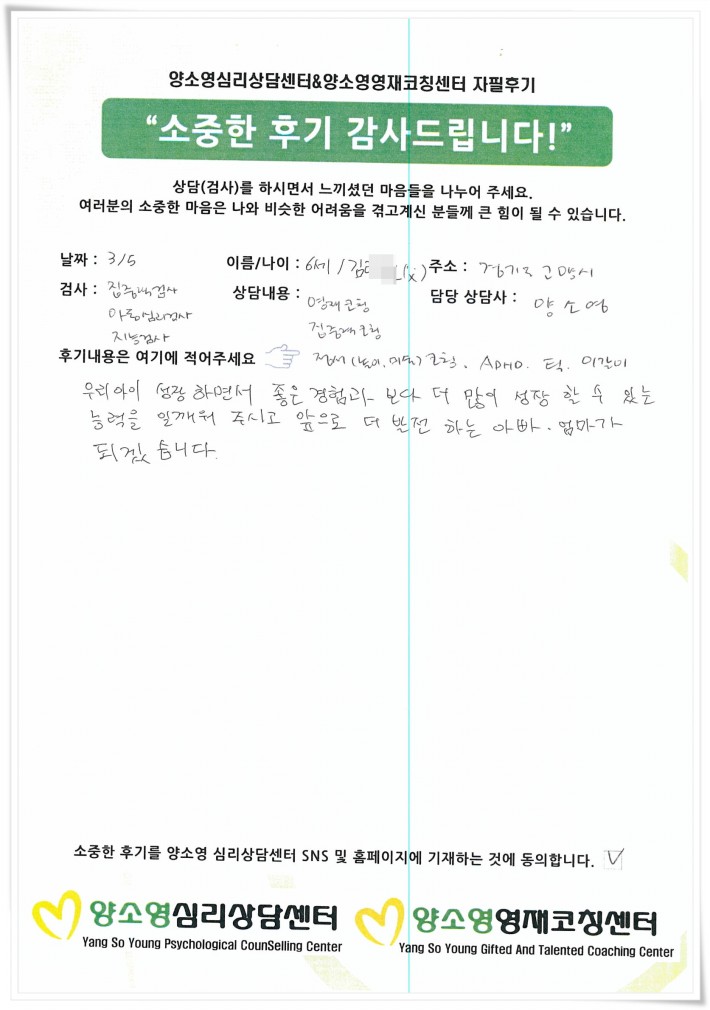 양소영심리상담센터&양소영영재코칭센터 자필후기
“소중한 후기 감사드립니다!”
상담(검사)를 하시면서 느끼셨던 마음들을 나누어 주세요.
여러분의 소중한 마음은 나와 비슷한 어려움을 겪고계신 분들께 큰 힘이 될 수 있습니다.
날짜 : 3/5 이름/나이 : 6세 / 김 주소 : 경기도 고양시
검사 : 집중력검사 상담내용 : 영재코칭 담당 상담사 : 양소영
아동심리검사 집중력코칭
지능검사
후기내용은 여기에 적어주세요 정서(놀이, 미술)코칭. ADHD. 틱. 이갈이
우리아이 성장 하면서 좋은 경험과 보다 더 많이 성장 할 수 있는
능력을 일깨워 주시고 앞으로 더 발전 하는 아빠·엄마가
되겠습니다.
소중한 후기를 양소영 심리상담센터 SNS 및 홈페이지에 기재하는 것에 동의합니다. V
양소영심리상담센터 양소영영재코칭센터
Yang So Young Psychological CounSelling Center Yang So Young Gifted And Talented Coaching Center